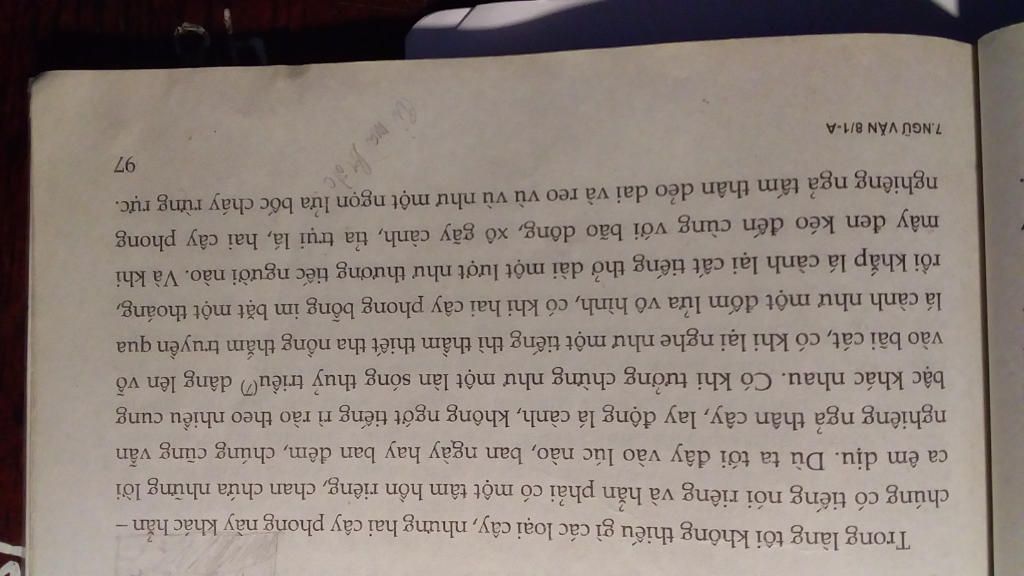 Trong làng tôi không thiếu gì các loại cây, nhưng hai cây phong này khác hẳn –
chúng có tiếng nói riêng và hẳn phải có một tâm hồn riêng, chan chứa những lời
ca êm dịu. Dù ta tới đây vào lúc nào, ban ngày hay ban đêm, chúng cũng vẫn
nghiêng ngả thân cây, lay động lá cành, không ngớt tiếng rì rào theo nhiều cung
bậc khác nhau. Có khi tưởng chừng như một làn sóng thuỷ triều(7) dâng lên vỗ
vào bãi cát, có khi lại nghe như một tiếng thì thầm thiết tha nồng thắm truyền qua
lá cành như một đốm lửa vô hình, có khi hai cây phong bỗng im bặt một thoáng,
rồi khắp lá cành lại cất tiếng thở dài một lượt như thương tiếc người nào. Và khi
mây đen kéo đến cùng với bão dông, xô gãy cành, tỉa trụi lá, hai cây phong
nghiêng ngả tấm thân dẻo dai và reo vù vù như một ngọn lửa bốc cháy rừng rực.
97
7.NGỮ VĂN 8/1-A